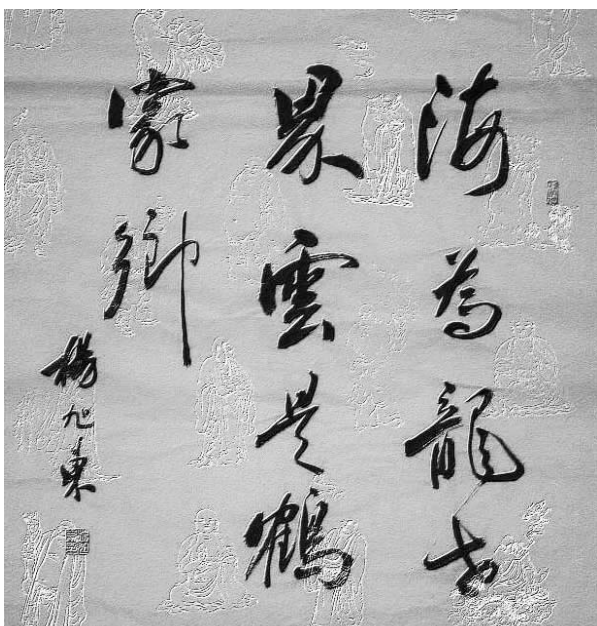 海為龍世
界雲是鶴
家鄉
楊旭東